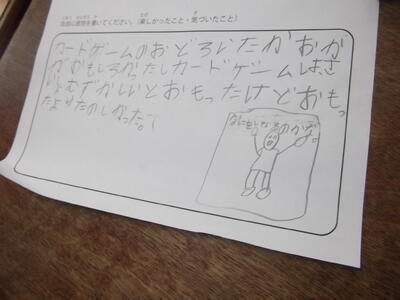 自由に感想を書いてください。（楽しかったこと・気づいたこと）
カードゲームのおどろいたかおが
がおもしろかったしカードゲームはさ
いしょむずかしいとおもったけどおもっ
たよりたのしかった。て
なにもしな
のかお。